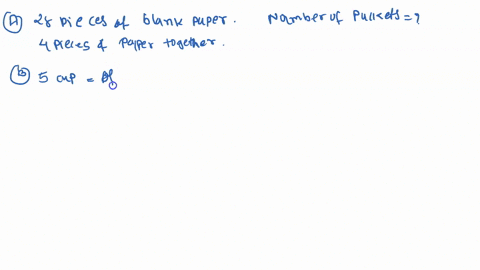 (a) 28 pieces of blank paper. Number of Packets = ?
4 pieces of Papper together.
(b) 5 cup = of